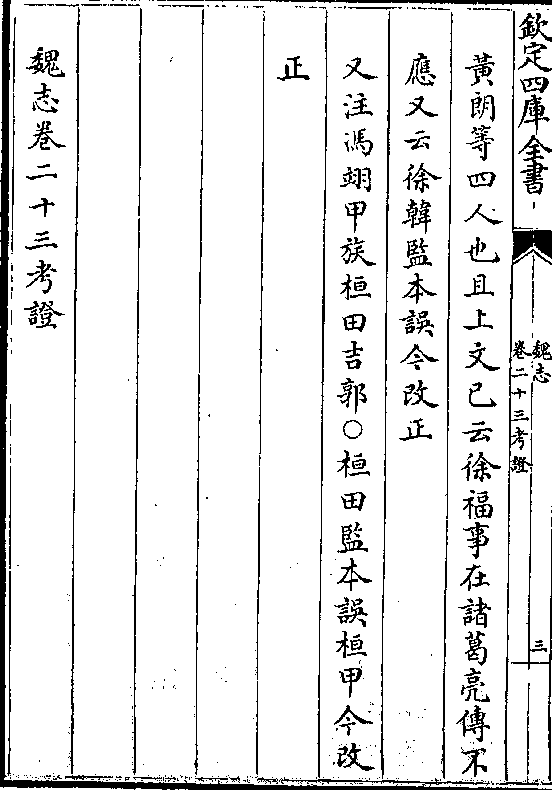 欽定四庫全書
魏志
卷二十三考證
三
黃朗等四人也且上文已云徐福事在諸葛亮傳不
應又云徐韓監本誤今改正
又注馮翊甲族桓田吉郭○桓田監本誤桓甲今改
正
魏志卷二十三考證